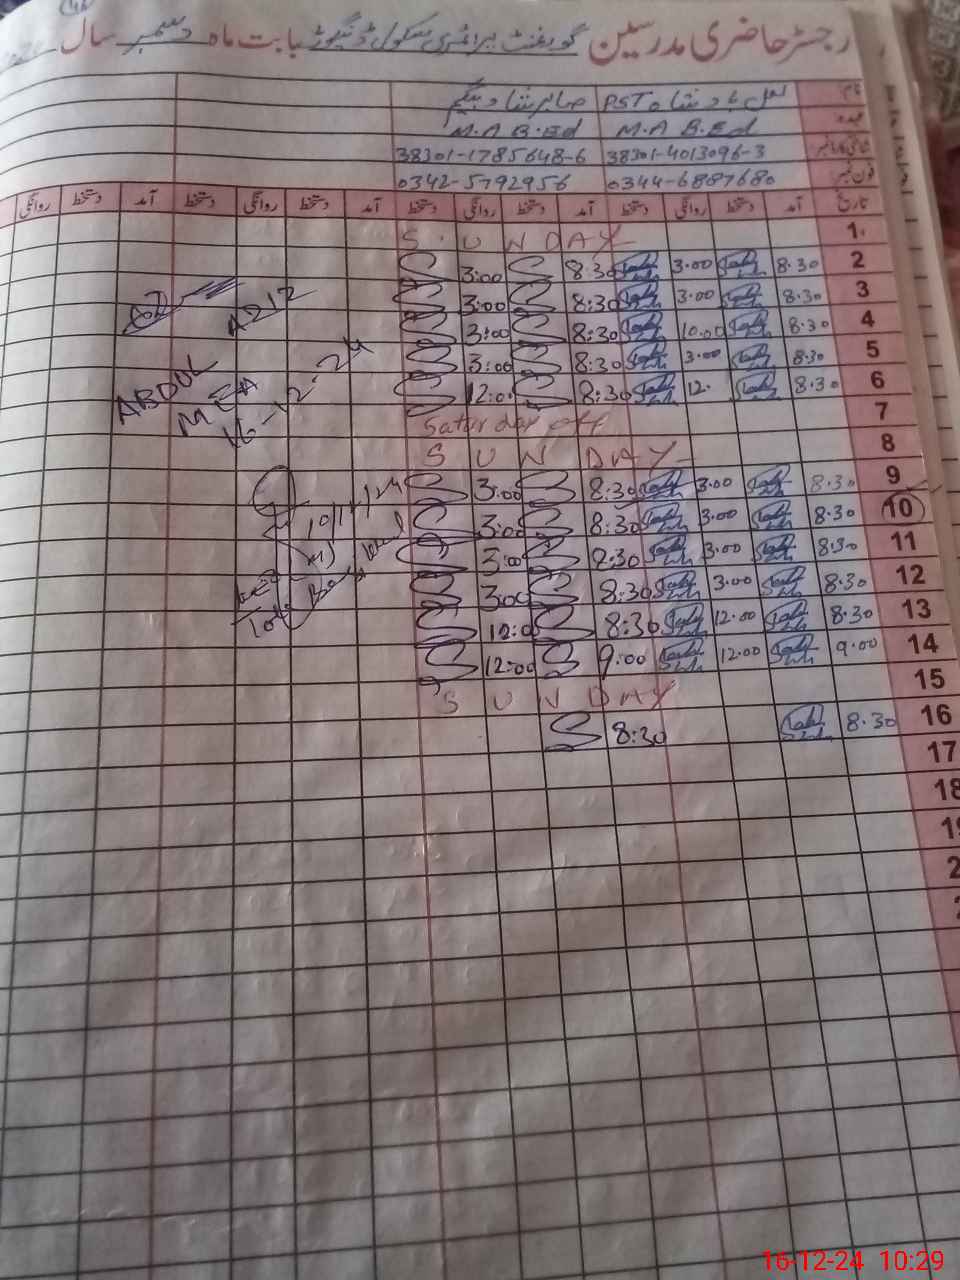 رجسٹر حاضری مدرسین گورنمنٹ پرائمری سکول بابت ماہ دسمبر سال
نام PST
عہدہ M.A B.Ed M.A B.Ed
شناختی کارڈ نمبر 38301-4013096-3 38301-1785648-6
فون نمبر 0344-6887680 0342-5792956
تاریخ آمد دستخط روانگی دستخط آمد دستخط روانگی دستخط آمد دستخط روانگی دستخط آمد دستخط روانگی
1 SUNDAY
2 8.30 3.00 8:30 3:00
3 8.30 3.00 8:30 3:00
4 8.30 10.00 8:30 3:00
5 8.30 3.00 8:30 3:00
6 8.30 12. 8:30 12:0
7 Saturday off
8 SUNDAY
9 8.30 3.00 8:30 3:00
10 8.30 3.00 8:30 3:00
11 8.30 3.00 8:30 3:00
12 8.30 3.00 8:30 3:00
13 8.30 12.00 8:30 12:00
14 9.00 12.00 9:00 12:00
15 SUNDAY
16 8.30 8:30
17
18
ABDUL
MEA
16-12-24
16-12-24 10:29